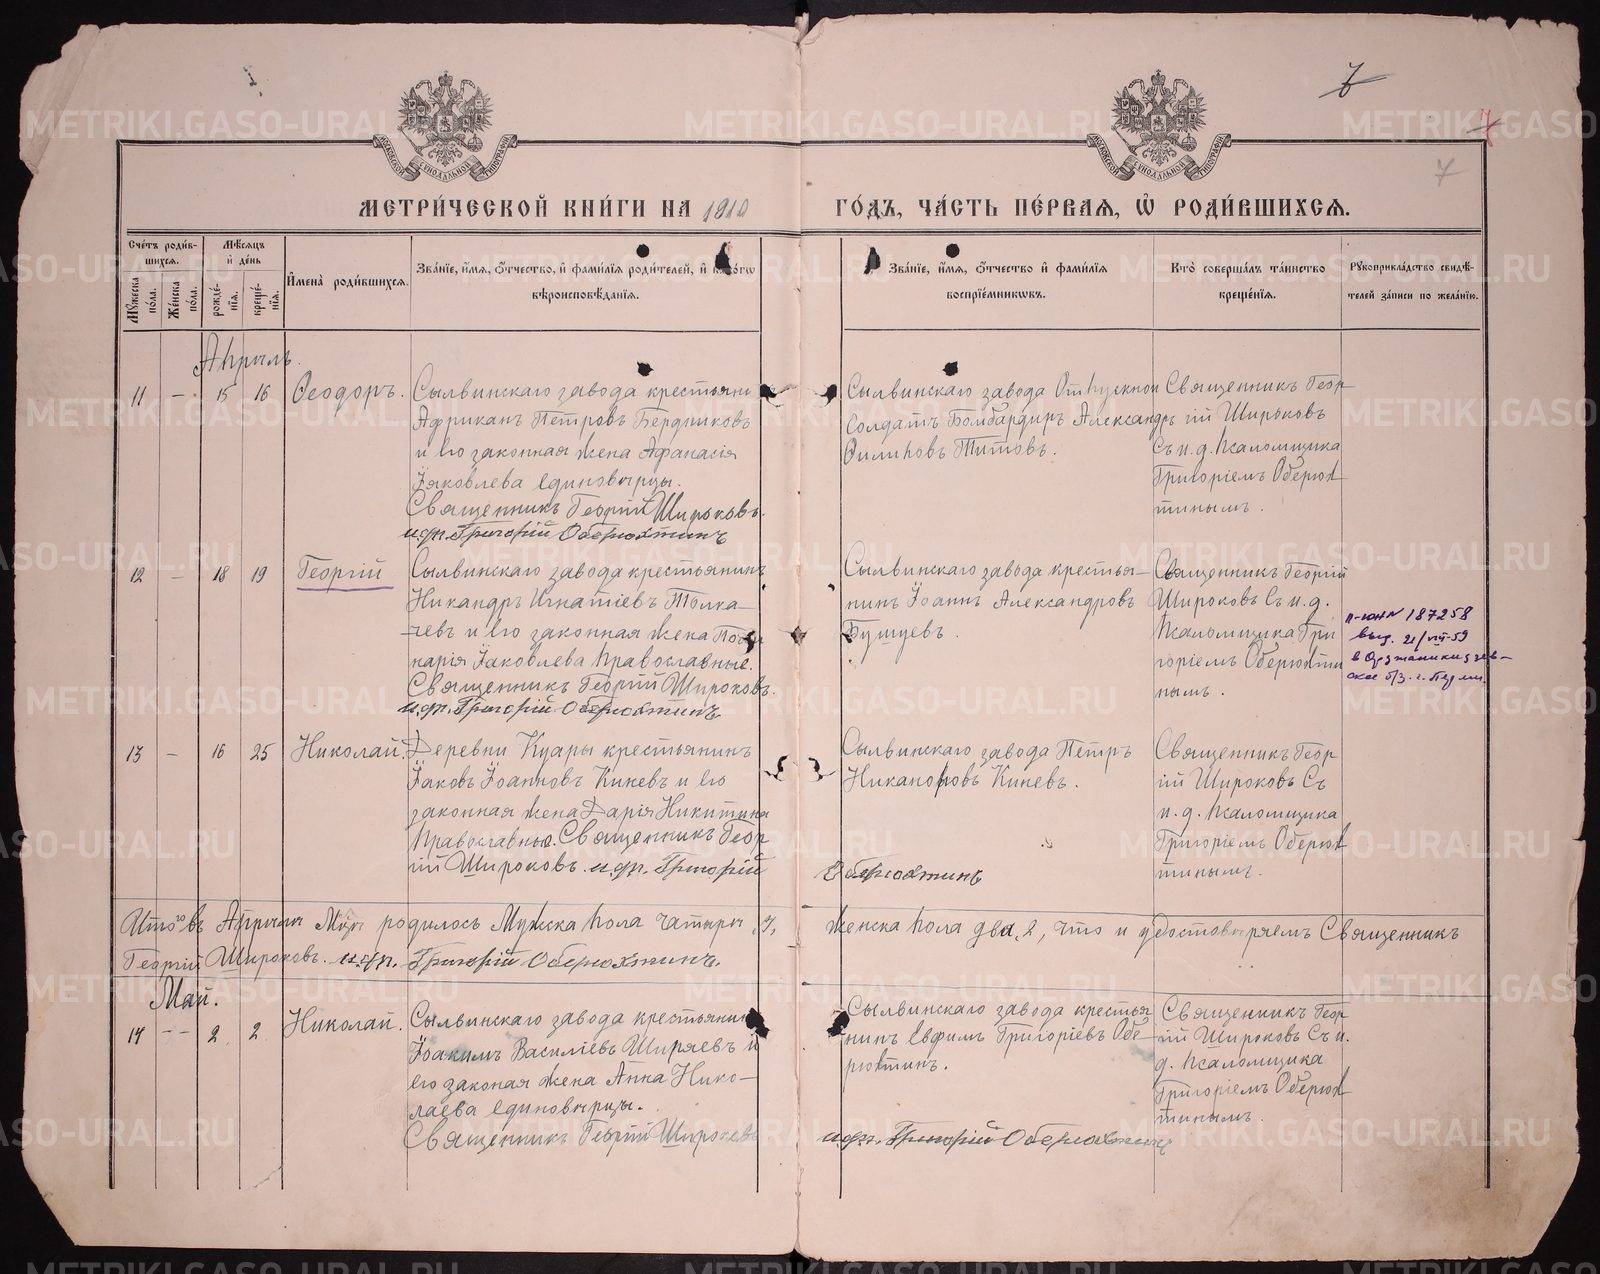 7
7
7
МОСКОВСКОЙ СѴНОДАЛЬНОЙ ТИПОГРАФІИ
МОСКОВСКОЙ СѴНОДАЛЬНОЙ ТИПОГРАФІИ
МЕТРИ́ЧЕСКОЙ КНИ́ГИ НА 1910 ГО́ДЪ, ЧА́СТЬ ПЕ́РВАЯ, Ѡ РОДИ́ВШИХСЯ.
Сче́тъ роди́в-
шихся.
Мꙋ́жеска по́ла.
Же́нска по́ла.
Мѣ́сяцъ
и҆ де́нь
рожде́-
нїя.
креще́-
нїя.
И҆мена̀ роди́вшихся.
Зва́нїе, и҆́мя, ѻ҆́тчество, и҆ фами́лїя роди́телей, и҆
вѣроисповѣ́данїя.
Зва́нїе, и҆́мя, ѻ҆́тчество и҆ фами́лїя
воспрїе́мникѡвъ.
Кто̀ соверша́лъ та́инство
креще́нїя.
Рꙋкоприкла́дство свидѣ́-
телей за́писи по жела́нїю.
Апрѣль.
11 — 15 16 Ѳеодоръ.
Сылвинскаго завода крестьяни
Африканъ Петровъ Бердниковъ
и его законная жена Афанасія
Іаковлева единовѣрцы.
Священникъ Георгій Широковъ.
и.д.п. Григорій Оберюхтинъ
Сылвинскаго завода Отпускной
солдатъ Бомбардиръ Александръ
Филиповъ Титовъ.
Священникъ Геор
гій Широковъ
Съ и.д. псаломщика
Григоріемъ Оберюх
тинымъ.
12 — 18 19 Георгій
Сылвинскаго завода крестьянинъ
Никандръ Игнатіевъ Толка—
чевъ и его законная жена
Іаковлева Православные.
Священникъ Георгій Широковъ.
и.д.п. Григорій Оберюхтинъ
Сылвинскаго завода крестья—
нинъ Іоаннъ Александровъ
Бушуевъ.
Священникъ Георгій
Широковъ Съ и.д.
псаломщика Гри
горіемъ Оберюхти
нымъ.
п-юн№ 187258
выд. 21/VII-59
в Орджоникидзев—
ское б/З. г. Перми.
13 — 16 25 Николай.
Деревни Куары крестьянинъ
Іаковъ Іоанновъ Киневъ и его
законная жена Дарія Никитина
Православные. Священникъ Геор
гій Широковъ. и.д.п. Григорій
Оберюхтинъ
Сылвинскаго завода Петръ
Никаноровъ Киневъ.
Священникъ Геор
гій Широковъ Съ
и.д. псаломщика
Григоріемъ Оберюх
тинымъ.
Итого въ Апрѣли родилось Мужска пола четыры 4, женска пола два, 2, что и удостовѣряемъ Священникъ
Георгій Широковъ. и.д.п. Григорій Оберюхтинъ.
Май.
14 — 2 2 Николай.
Сылвинскаго завода крестьянин
Іоакимъ Василіевъ Ширяевъ и
его законая жена Анна Нико—
лаева единовѣрцы.
Священникъ Георгій Широковъ
и.д.п. Григорій Оберюхтинъ
Сылвинскаго завода крестья
нинъ Евфимъ Григоріевъ Обе—
рюхтинъ.
Священникъ Геор
гій Широковъ Съ и.
д. псаломщика
Григоріемъ Оберюх
тинымъ.
METRIKI.GASO-URAL.RU